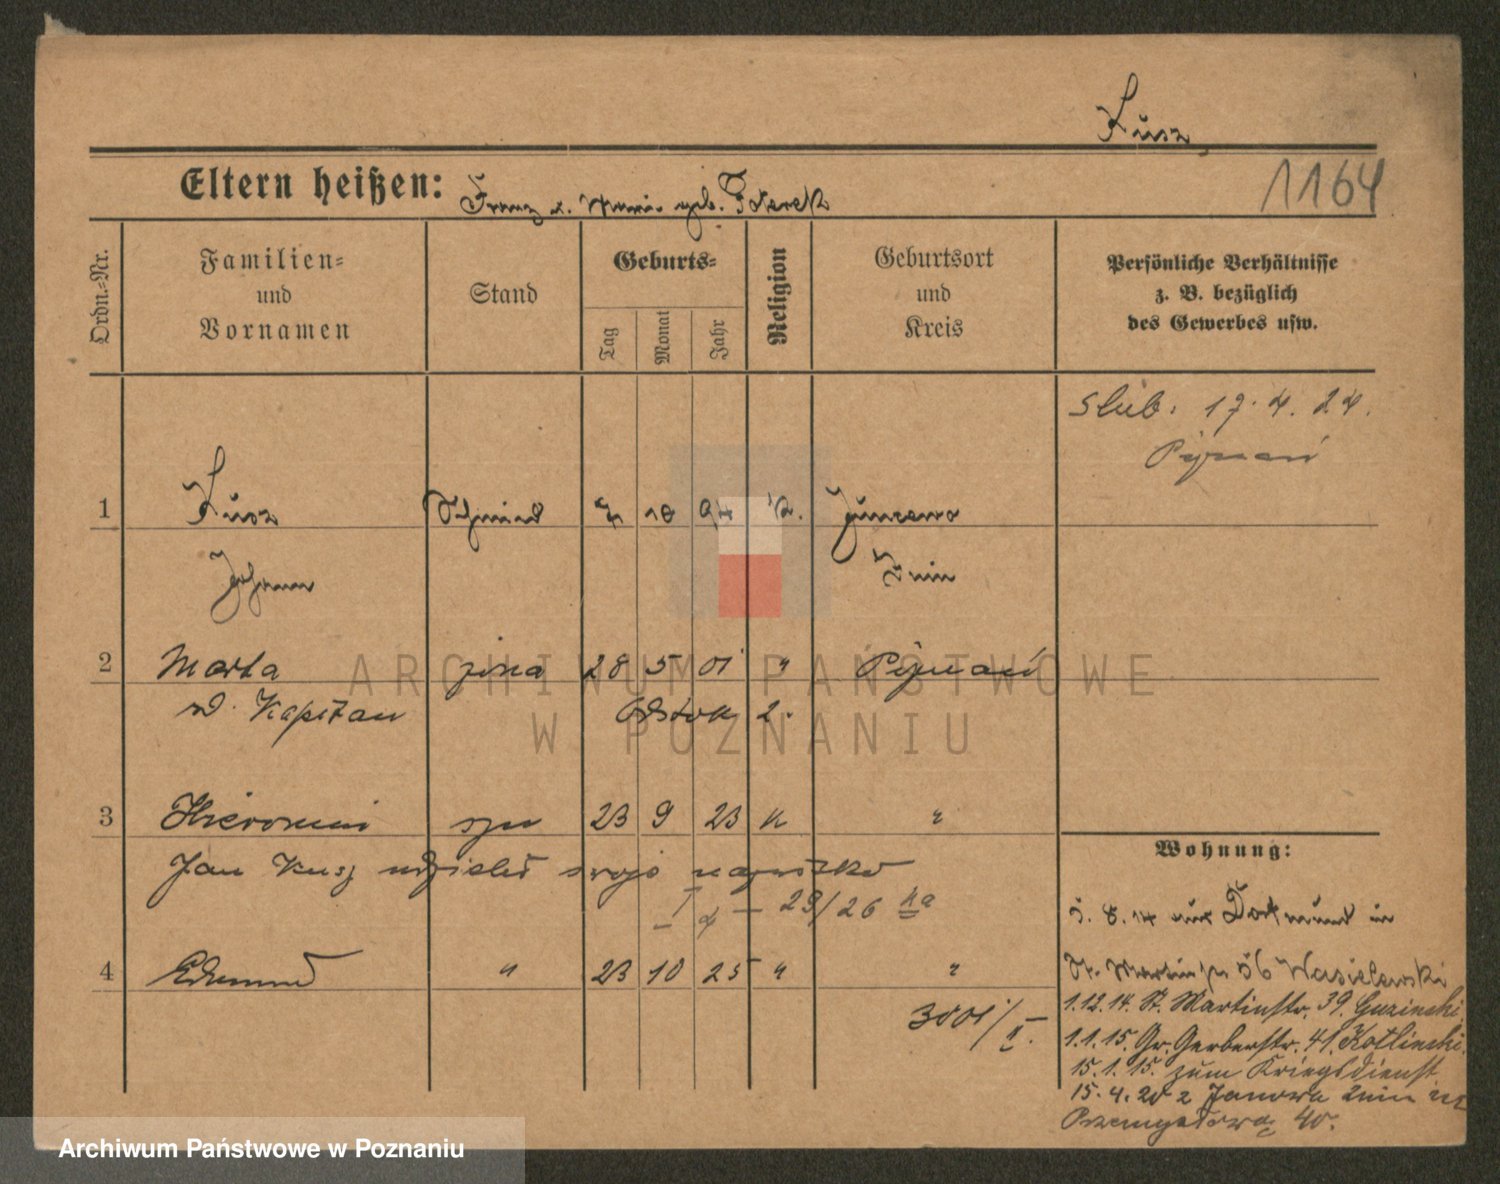 Kusz
Eltern heißen: Franz u. Maria geb.
1164
Ordn.-Nr.
Familien-
und
Vornamen
Stand
Geburts-
Tag
Monat
Jahr
Religion
Geburtsort
und
Kreis
Persönliche Verhältnisse
z. B. bezüglich
des Gewerbes usw.
Slub: 17. 4. 24.
Poznań
1 Kusz Schmied 10 94
Johann Znin
2 Marta żona 28 5 01 " Poznań
Kapitan Odstok 2.
3 Hieronim syn 23 9 23 k "
Jan Kusz swoje
29/26
4 Edmund " 23 10 25 " "
3001/
Wohnung:
5. 8. 14 aus Dortmund in
St. Martin 56 Wasielewski
1.12.14. St. Martinstr. 39. Guzinski
1.1.15. Gr. Gerberstr. 41. Kotlinski.
15.1.15. zum Kriegsdienst
15.4.20 z Janowa Znin
Przemysłowa 40.
ARCHIWUM PAŃSTWOWE
W POZNANIU
Archiwum Państwowe w Poznaniu